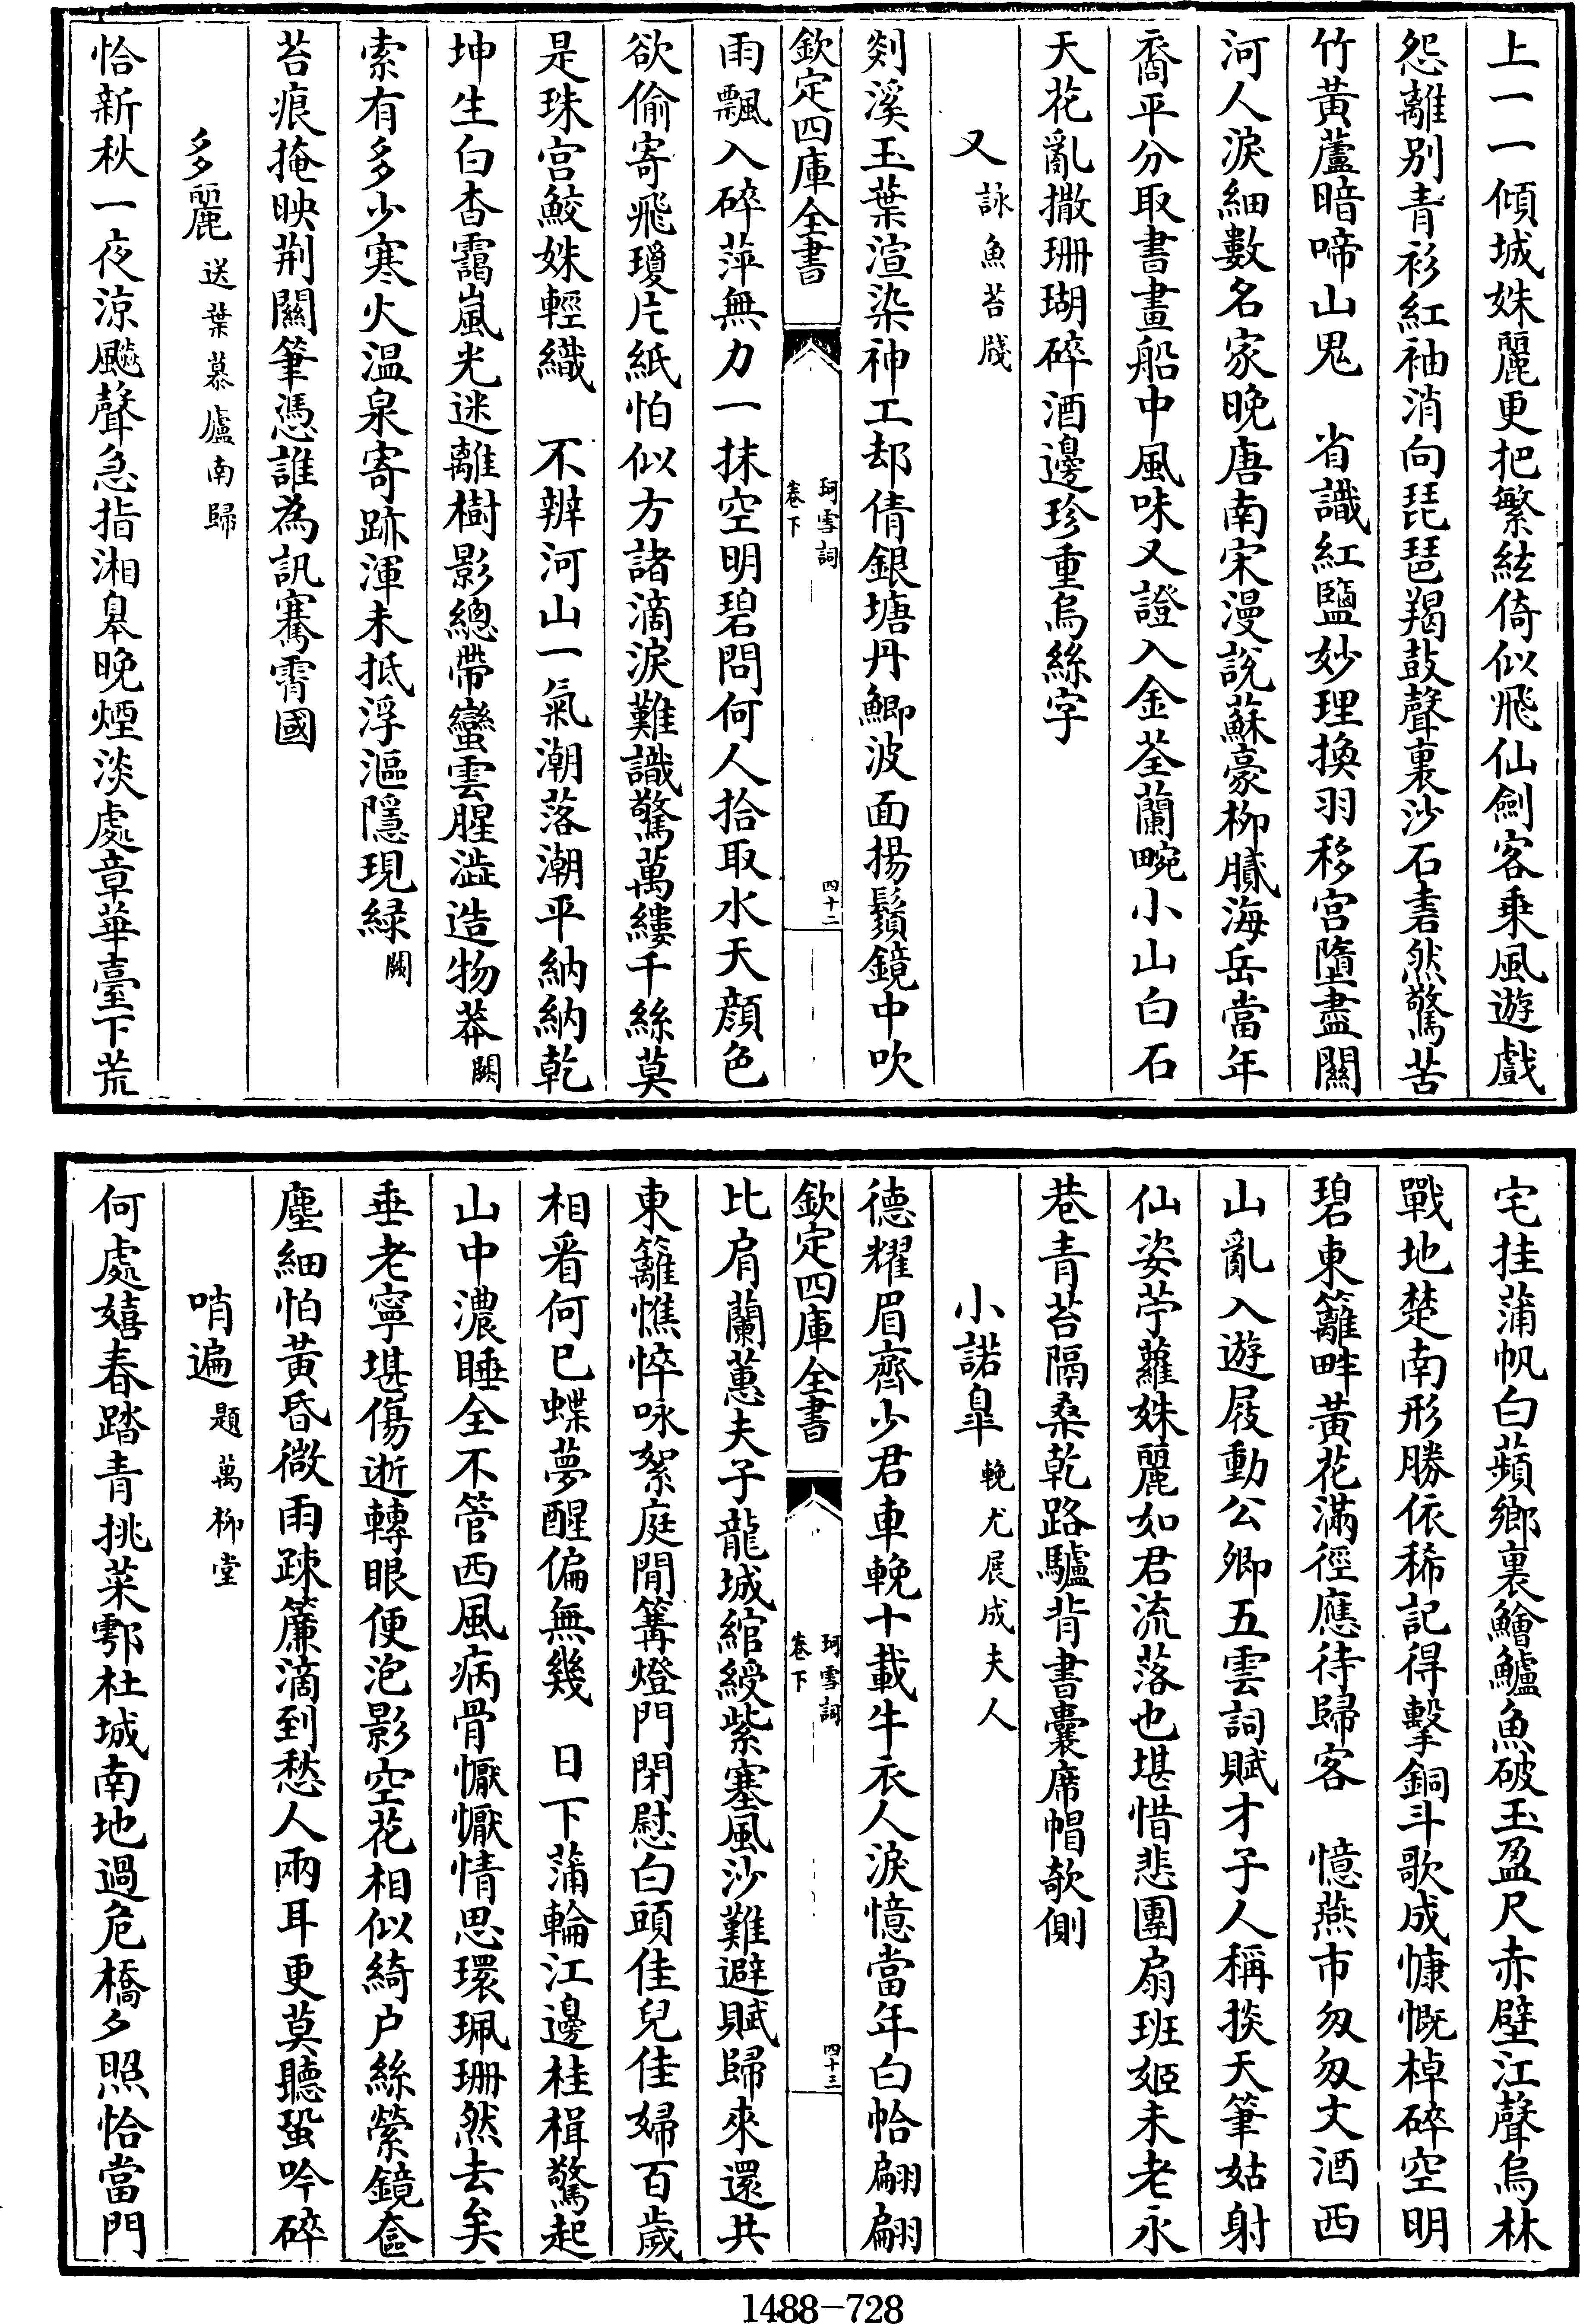 上一一一傾城姝麗更把繁絃倚似飛仙劍客乘風遊戲
怨離别青衫紅袖消向琵琶羯鼓聲裏沙石砉然驚苦
竹黃蘆暗啼山鬼　省識紅鹽妙理換羽移宫墮盡關
河人淚細數名家晚唐南宋漫說蘇豪柳膩海岳當年
裔平分取書畫船中風味又證入金荃蘭畹小山白石
天花亂撒珊瑚碎酒邊珍重烏絲字
又 詠魚苔牋
剡溪玉葉渲染神工却倩銀塘丹鯽波面揚鬚鏡中吹
欽定四庫全書 珂雪詞 卷下 四十二
雨飄入碎萍無力一抹空明碧問何人拾取水天顔色
欲偷寄飛瓊片紙怕似方諸滴淚難識驚萬縷千絲莫
是珠宫鮫姝輕織　不辨河山一氣潮落潮平納納乾
坤生白杳靄嵐光迷離樹影總帶蠻雲腥澁造物莽闕
索有多少寒火温泉寄跡渾未抵浮漚隱現緑闕
苔痕掩映荆關筆憑誰為訊騫霄國
多麗 送葉慕廬南歸
恰新秋一夜涼飈聲急指湘皋晚煙淡處章華臺下荒
宅挂蒲帆白蘋鄉裏鱠鱸魚破玉盈尺赤壁江聲烏林
戰地楚南形勝依稀記得擊銅斗歌成慷慨棹碎空明
碧東籬畔黃花滿徑應待歸客　憶燕市匆匆文酒西
山亂入遊屐動公卿五雲詞賦才子人稱掞天筆姑射
仙姿苧蘿姝麗如君流落也堪惜悲團扇班姬未老永
巷青苔隔桑乾路驢背書囊席帽欹側
小諾皐 輓尤展成夫人
德耀眉齊少君車輓十載牛衣人淚憶當年白帢翩翩
欽定四庫全書 珂雪詞 卷下 四十三
比肩蘭蕙夫子龍城綰綬紫塞風沙難避賦歸來還共
東籬憔悴咏絮庭閒篝燈門閉慰白頭佳兒佳婦百歲
相看何巳蝶夢醒偏無幾　日下蒲輪江邊桂楫驚起
山中濃睡全不管西風病骨懨懨情思環珮珊然去矣
垂老寧堪傷逝轉眼便泡影空花相似綺户絲縈鏡奩
塵細怕黃昏微雨疎簾滴到愁人兩耳更莫聽蛩吟碎
哨遍 題萬柳堂
何處嬉春踏青挑菜鄠杜城南地過危橋夕照恰當門
1488—728